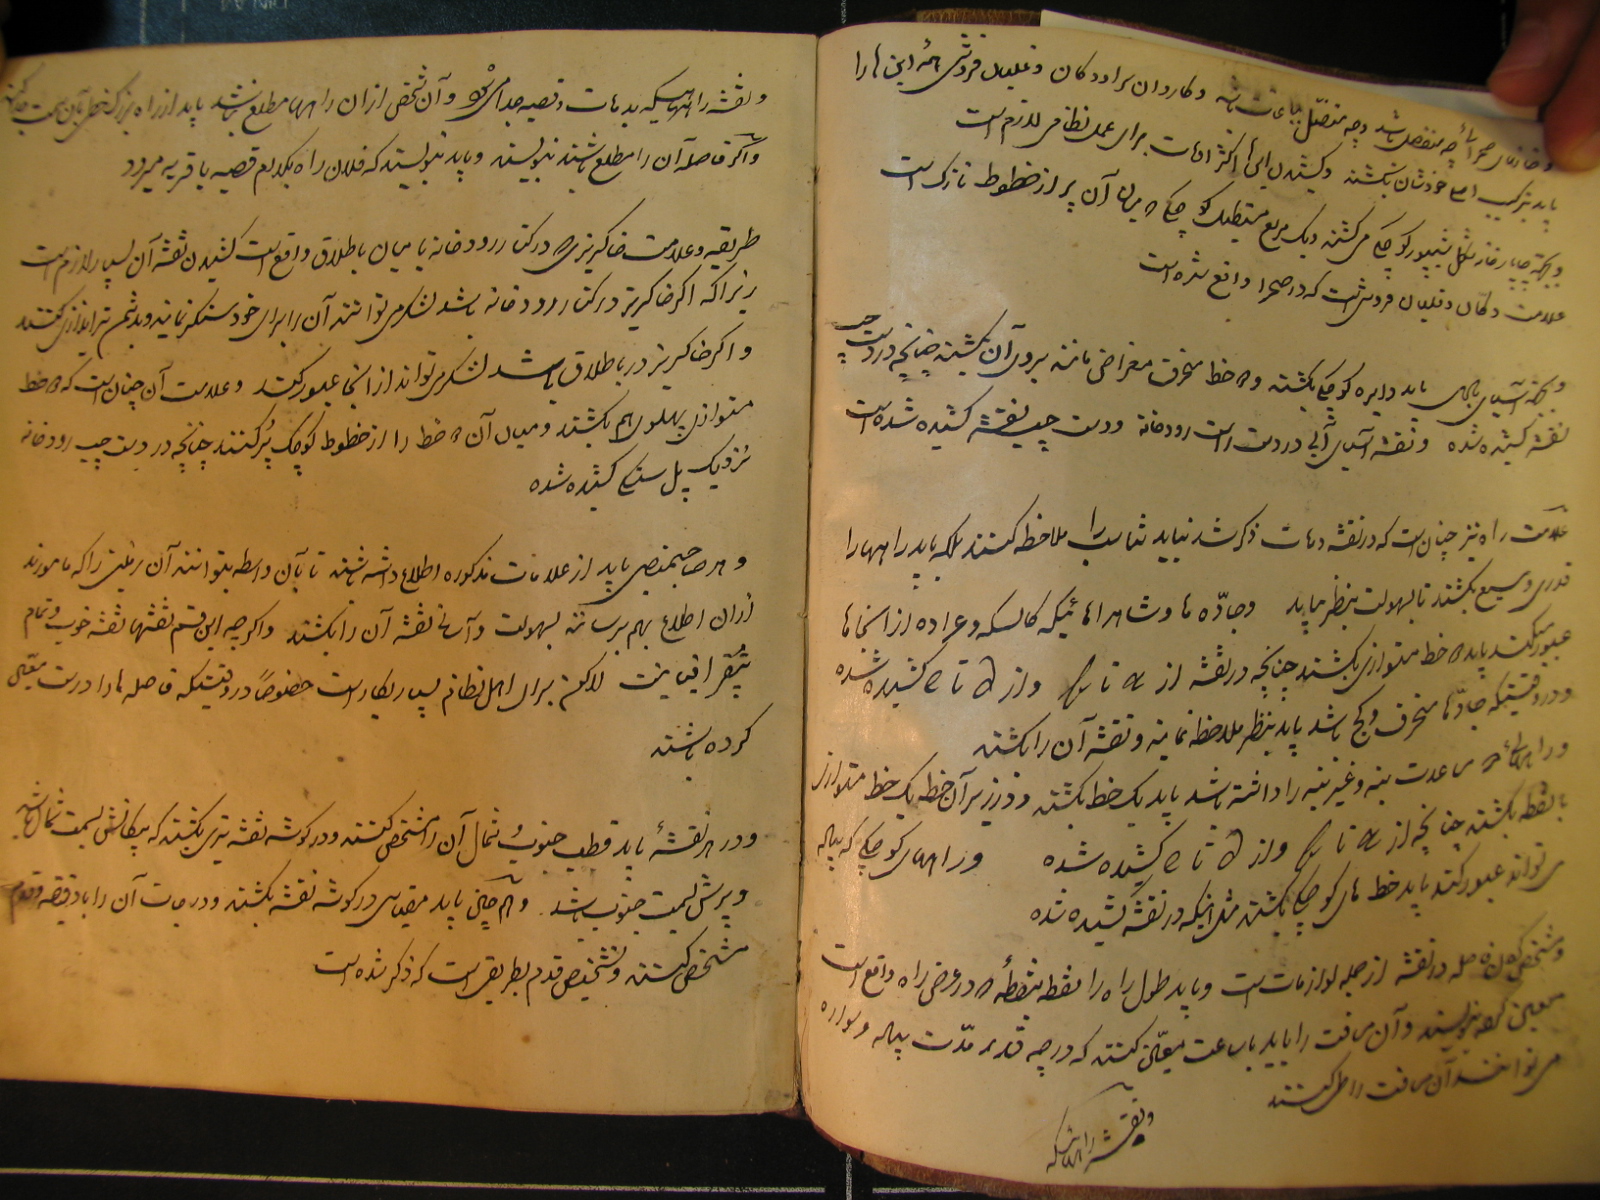 و خانهای صحرائی چه منفصل باشد و چه متصل بباغات باشد و کاروان سرا و دکان و غلیان فروشی همهٔ این ها را
باید بترکیب اصلی خودشان بکشند و کشیدن این‌ها اکثر اوقات برای عمل نظامی لازم است
و بجهة چاپارخانه شکل شیپور کوچکی می‌کشند و یک مربع مستطیل کوچکی که میان آن پر از خطوط نازک است
علامت دکان و قلیان فروشی است که در صحرا واقع شده است
و بجهة آسیای بادی باید دایره کوچکی بکشند و دو خط منحرف مقراضی مانند بر روی آن بکشند چنانچه در دست چپ
نقشه کشیده شده و نقشه آسیای آبی در دست راست رودخانه و دست چپ نقشه کشیده شده است
علامت راه نیز چنان است که در نقشه دهات ذکر شد نباید تناسب را ملاحظه کنند بلکه باید راهها را
قدری وسیع بکشند تا بسهولت بنظر بیاید و جادّه ها و شاهراههائیکه کالسکه و عراده از اینجاها
عبور میکند باید دو خط متوازی بکشند چنانچه در نقشه از a تا b و از d تا e کشیده شده
و در وقتیکه جادّها منحرف و کج باشد باید بنظر ملاحظه نمایند و نقشه آن را بکشند
و راههائی که ساعدت بنه و غیر بنه را داشته باشد باید یک خط بکشند و در زیر آن خط یک خط متوازی
با نقطه بکشند چنانچه از a تا b و از d تا e کشیده شده و راههای کوچکی که پیاده
می‌تواند عبور کند باید خط های کوچکی بکشند مثل اینکه در نقشه کشیده شده
و مشخص کردن فاصله در نقشه از جمله لوازمات است و باید طول راه را نقطه بنقطه که در عرض راه واقع است
معین کرده بنویسند و آن مسافت را باید با ساعت معین کنند که در چه قدر مدّت پیاده و سواره
می‌توانند آن مسافت را طی کنند
و نقشه راههائیکه
و نقشه راههائیکه بدهات و قصبه جدا می‌شود و آن شخص از آن راهها مطلع باشد باید از راه بزرگ خطی بآن سمت جدا کنند
و اگر فاصله آن را مطلع باشند بنویسند و باید بنویسند که فلان راه بکدام قصبه یا قریه میرود
طریقه و علامت خاکریزی که در کنار رودخانه یا میان باطلاق واقع است کشیدن نقشه آن بسیار لازم است
زیرا که اگر خاکریز در کنار رودخانه باشد لشکر می‌توانند آن را برای خود سنگر نمایند و بدشمن تیراندازی کنند
و اگر خاکریز در باطلاق باشد لشکر می‌تواند از آنجا عبور کند و علامت آن چنان است که دو خط
متوازی پهلوی هم بکشند و میان آن دو خط را از خطوط کوچک پُر کنند چنانچه در دست چپ رودخانه
نزدیک پل سنگی کشیده شده
و هر صاحبمنصبی باید از علامات مذکوره اطلاع داشته باشند تا بآن واسطه بتوانند آن زمینی را که مامورند
از آن اطلاع بهم برسانند بسهولت و آسانی نقشه آن را بکشند و اگرچه این قسم نقشها نقشه خوب و تمام
پُتُقرافی نیست لاکن برای اهل نظام بسیار بکار است خصوصاً در وقتیکه فاصله ها را درست معین
کرده باشند
و در هر نقشهٔ باید قطب جنوب و شمال آن را مشخص کنند و در گوشه نقشه تیری بکشند که پیکانش بسمت شمال باشد
و پرش بسمت جنوب باشد و همچنین باید مقیاسی در گوشه نقشه بکشند و درجات آن را با دقیقه و قدم
مشخص کنند و تشخیص قدم بطریقی است که ذکر شده است